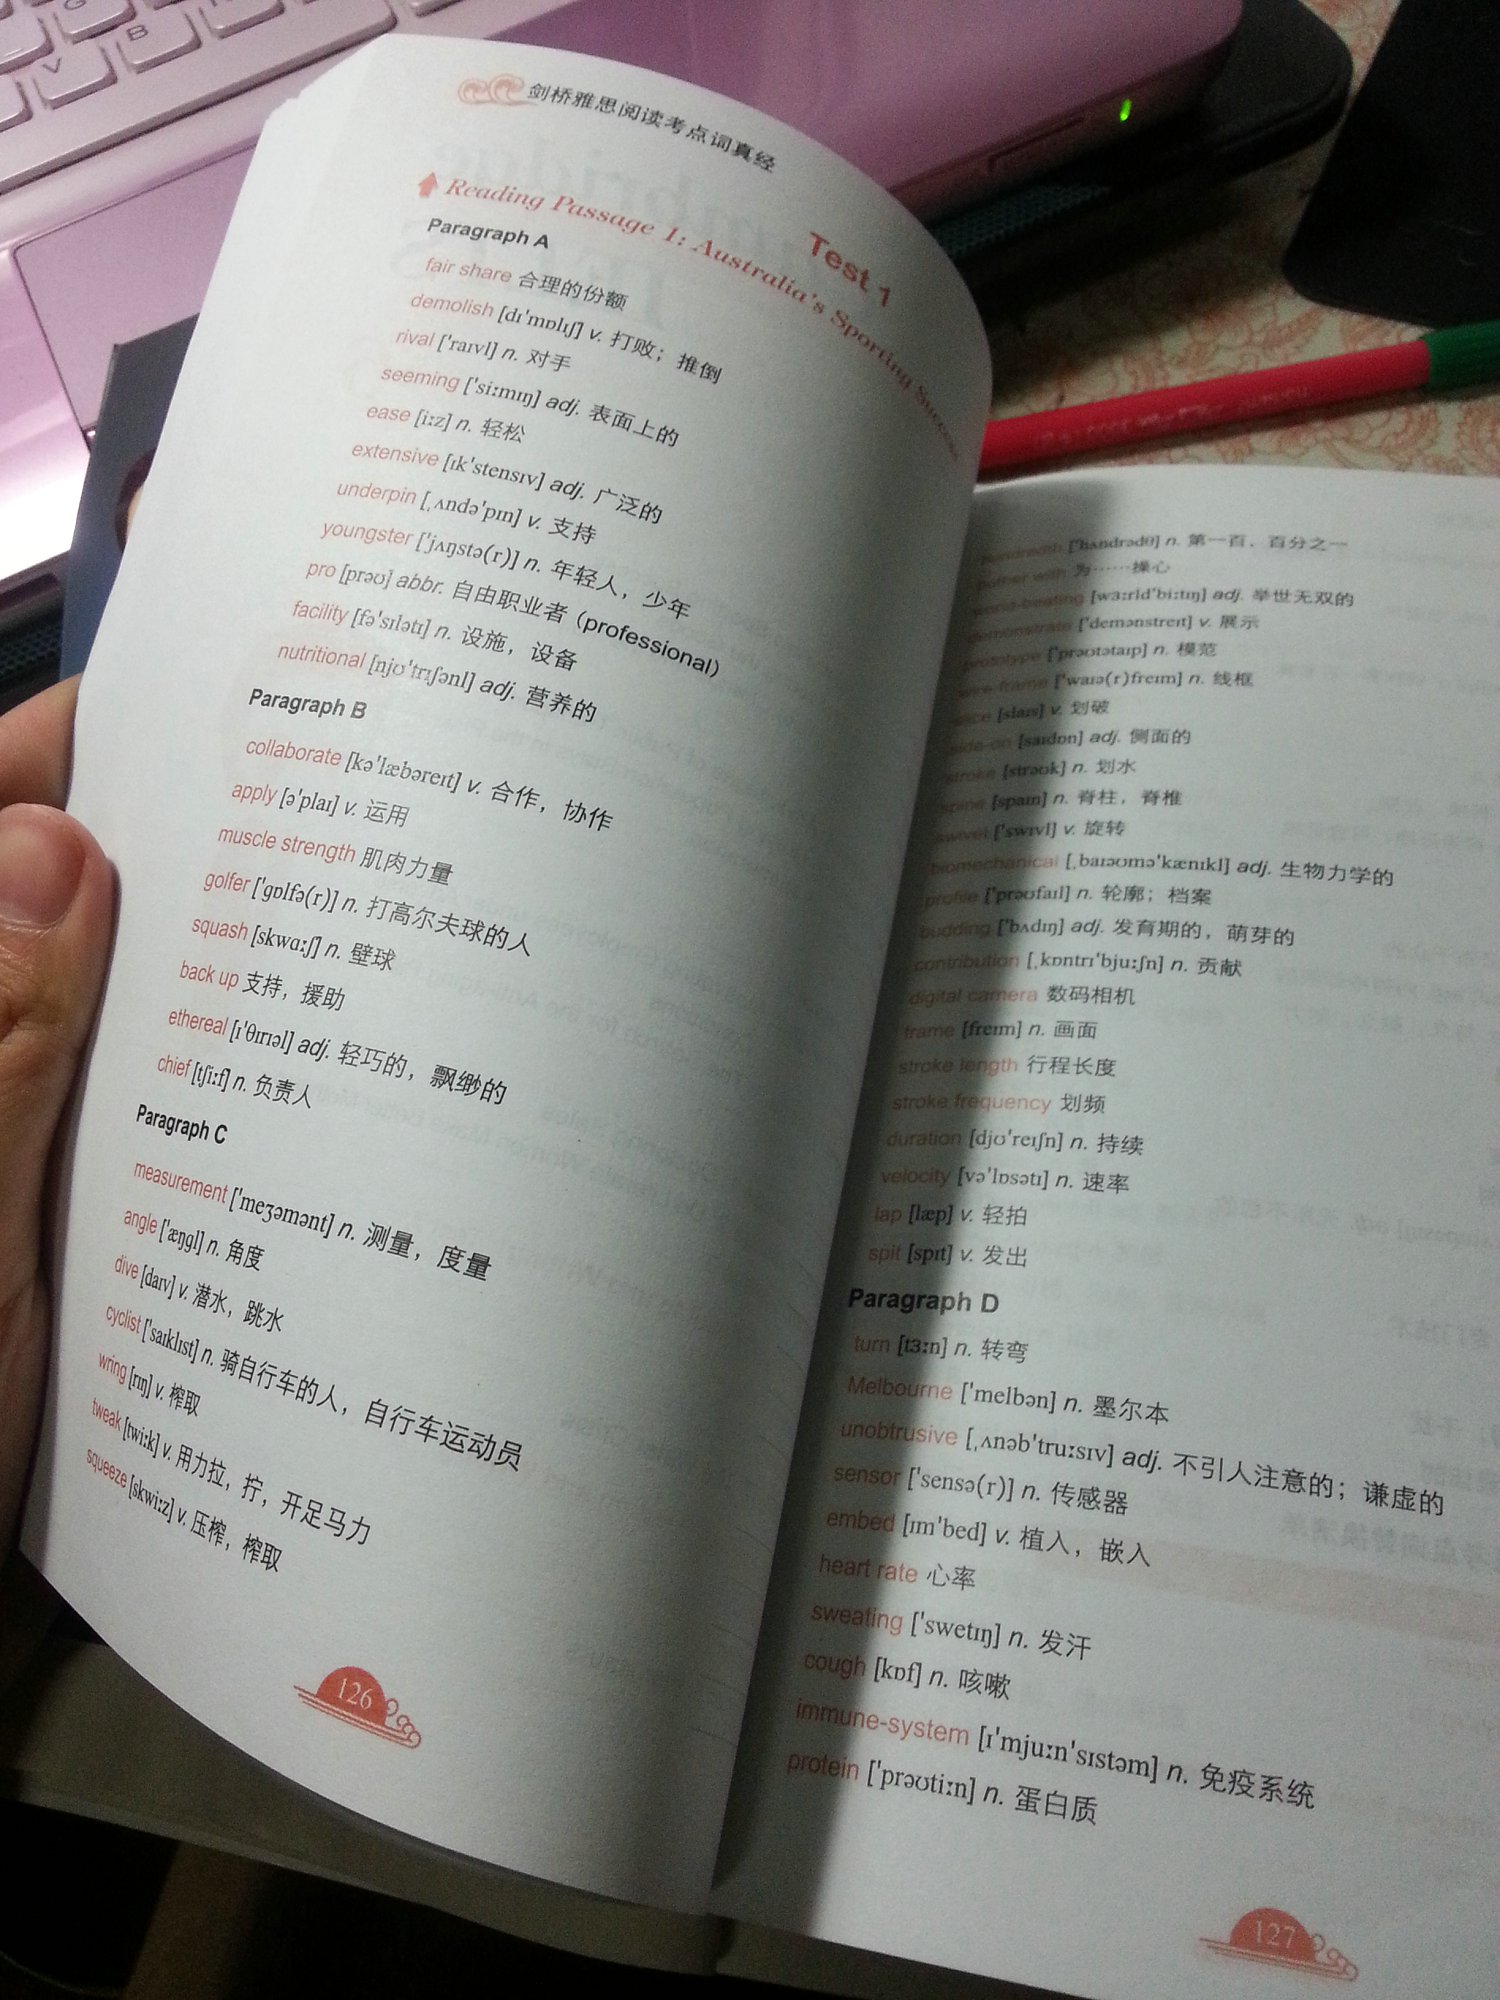 剑桥雅思阅读考点词真经
Test 1
Reading Passage 1: Australia's Sporting Success
Paragraph A
fair share 合理的份额
demolish [dɪˈmɒlɪʃ] v. 打败；推倒
rival [ˈraɪvl] n. 对手
seeming [ˈsiːmɪŋ] adj. 表面上的
ease [iːz] n. 轻松
extensive [ɪkˈstensɪv] adj. 广泛的
underpin [ˌʌndəˈpɪn] v. 支持
youngster [ˈjʌŋstə(r)] n. 年轻人，少年
pro [prəʊ] abbr. 自由职业者（professional）
facility [fəˈsɪlətɪ] n. 设施，设备
nutritional [njʊˈtrɪʃənl] adj. 营养的
Paragraph B
collaborate [kəˈlæbəreɪt] v. 合作，协作
apply [əˈplaɪ] v. 运用
muscle strength 肌肉力量
golfer [ˈɡɒlfə(r)] n. 打高尔夫球的人
squash [skwɑːʃ] n. 壁球
back up 支持，援助
ethereal [ɪˈθɪrɪəl] adj. 轻巧的，飘缈的
chief [tʃiːf] n. 负责人
Paragraph C
measurement [ˈmeʒəmənt] n. 测量，度量
angle [ˈæŋɡl] n. 角度
dive [daɪv] v. 潜水，跳水
cyclist [ˈsaɪklɪst] n. 骑自行车的人，自行车运动员
wring [rɪŋ] v. 榨取
tweak [twiːk] v. 用力拉，拧，开足马力
squeeze [skwiːz] v. 压榨，榨取
126
hundredth [ˈhʌndrədθ] n. 第一百，百分之一
bother with 为……操心
world-beating [wɜːrldˈbiːtɪŋ] adj. 举世无双的
demonstrate [ˈdemənstreɪt] v. 展示
prototype [ˈprəʊtətaɪp] n. 模范
wire-frame [ˈwaɪə(r)freɪm] n. 线框
slice [slaɪs] v. 划破
side-on [saɪdɒn] adj. 侧面的
stroke [strəʊk] n. 划水
spine [spaɪn] n. 脊柱，脊椎
swivel [ˈswɪvl] v. 旋转
biomechanical [ˌbaɪəʊməˈkænɪkl] adj. 生物力学的
profile [ˈprəʊfaɪl] n. 轮廓；档案
budding [ˈbʌdɪŋ] adj. 发育期的，萌芽的
contribution [ˌkɒntrɪˈbjuːʃn] n. 贡献
digital camera 数码相机
frame [freɪm] n. 画面
stroke length 行程长度
stroke frequency 划频
duration [djʊˈreɪʃn] n. 持续
velocity [vəˈlɒsətɪ] n. 速率
lap [læp] v. 轻拍
spit [spɪt] v. 发出
Paragraph D
turn [tɜːn] n. 转弯
Melbourne [ˈmelbən] n. 墨尔本
unobtrusive [ˌʌnəbˈtruːsɪv] adj. 不引人注意的；谦虚的
sensor [ˈsensə(r)] n. 传感器
embed [ɪmˈbed] v. 植入，嵌入
heart rate 心率
sweating [ˈswetɪŋ] n. 发汗
cough [kɒf] n. 咳嗽
immune-system [ɪˈmjuːnˈsɪstəm] n. 免疫系统
protein [ˈprəʊtiːn] n. 蛋白质
127
V
B